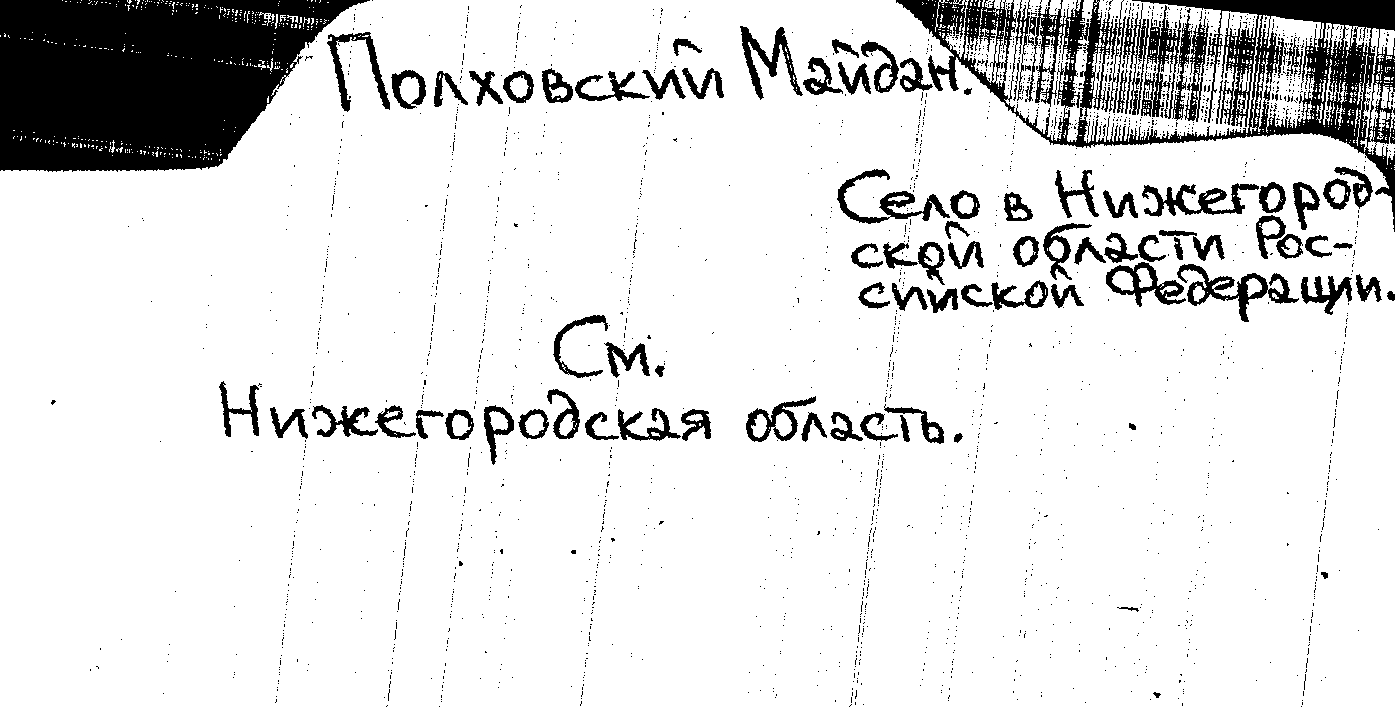 Полховский Майдан.
Село в Нижегород-
ской области Рос-
сийской Федерации.
См.
Нижегородская область.